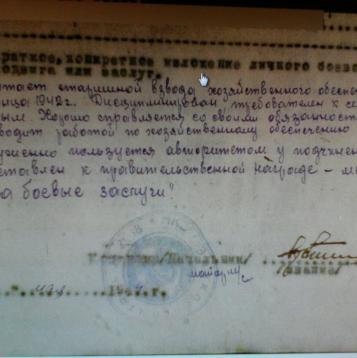 краткое, конкретное изложение личного боево
подвига или заслуг
отает старшиной взвода хозяйственного обеспе
1942г. Дисциплинирован, требователен к се
ым. Хорошо справляется со своими обязанност
водит работой по хозяйственному обеспечению
женно пользуется авторитетом у подчинен
ставлен к правительственной награде - ме
за боевые заслуги"
Командир/Начальник/
майор
/звание/
" мая 194 г.